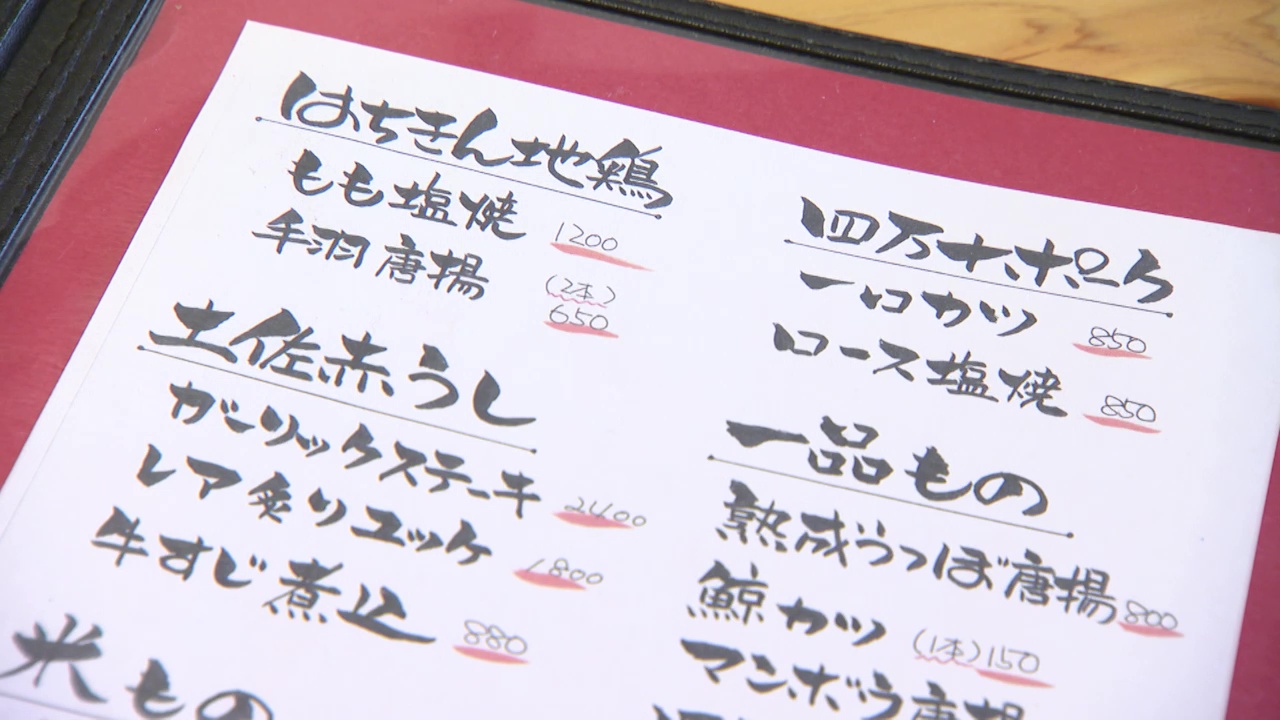 はちきん地鶏
もも塩焼 1200
手羽唐揚 (2本) 650
土佐赤うし
ガーリックステーキ 2400
レア炙りユッケ 1800
牛すじ煮込 880
米もの
四万十ポーク
一口カツ 850
ロース塩焼 850
一品もの
熟成うつぼ唐揚 800
鯨カツ (1本) 150
マンボウ唐揚